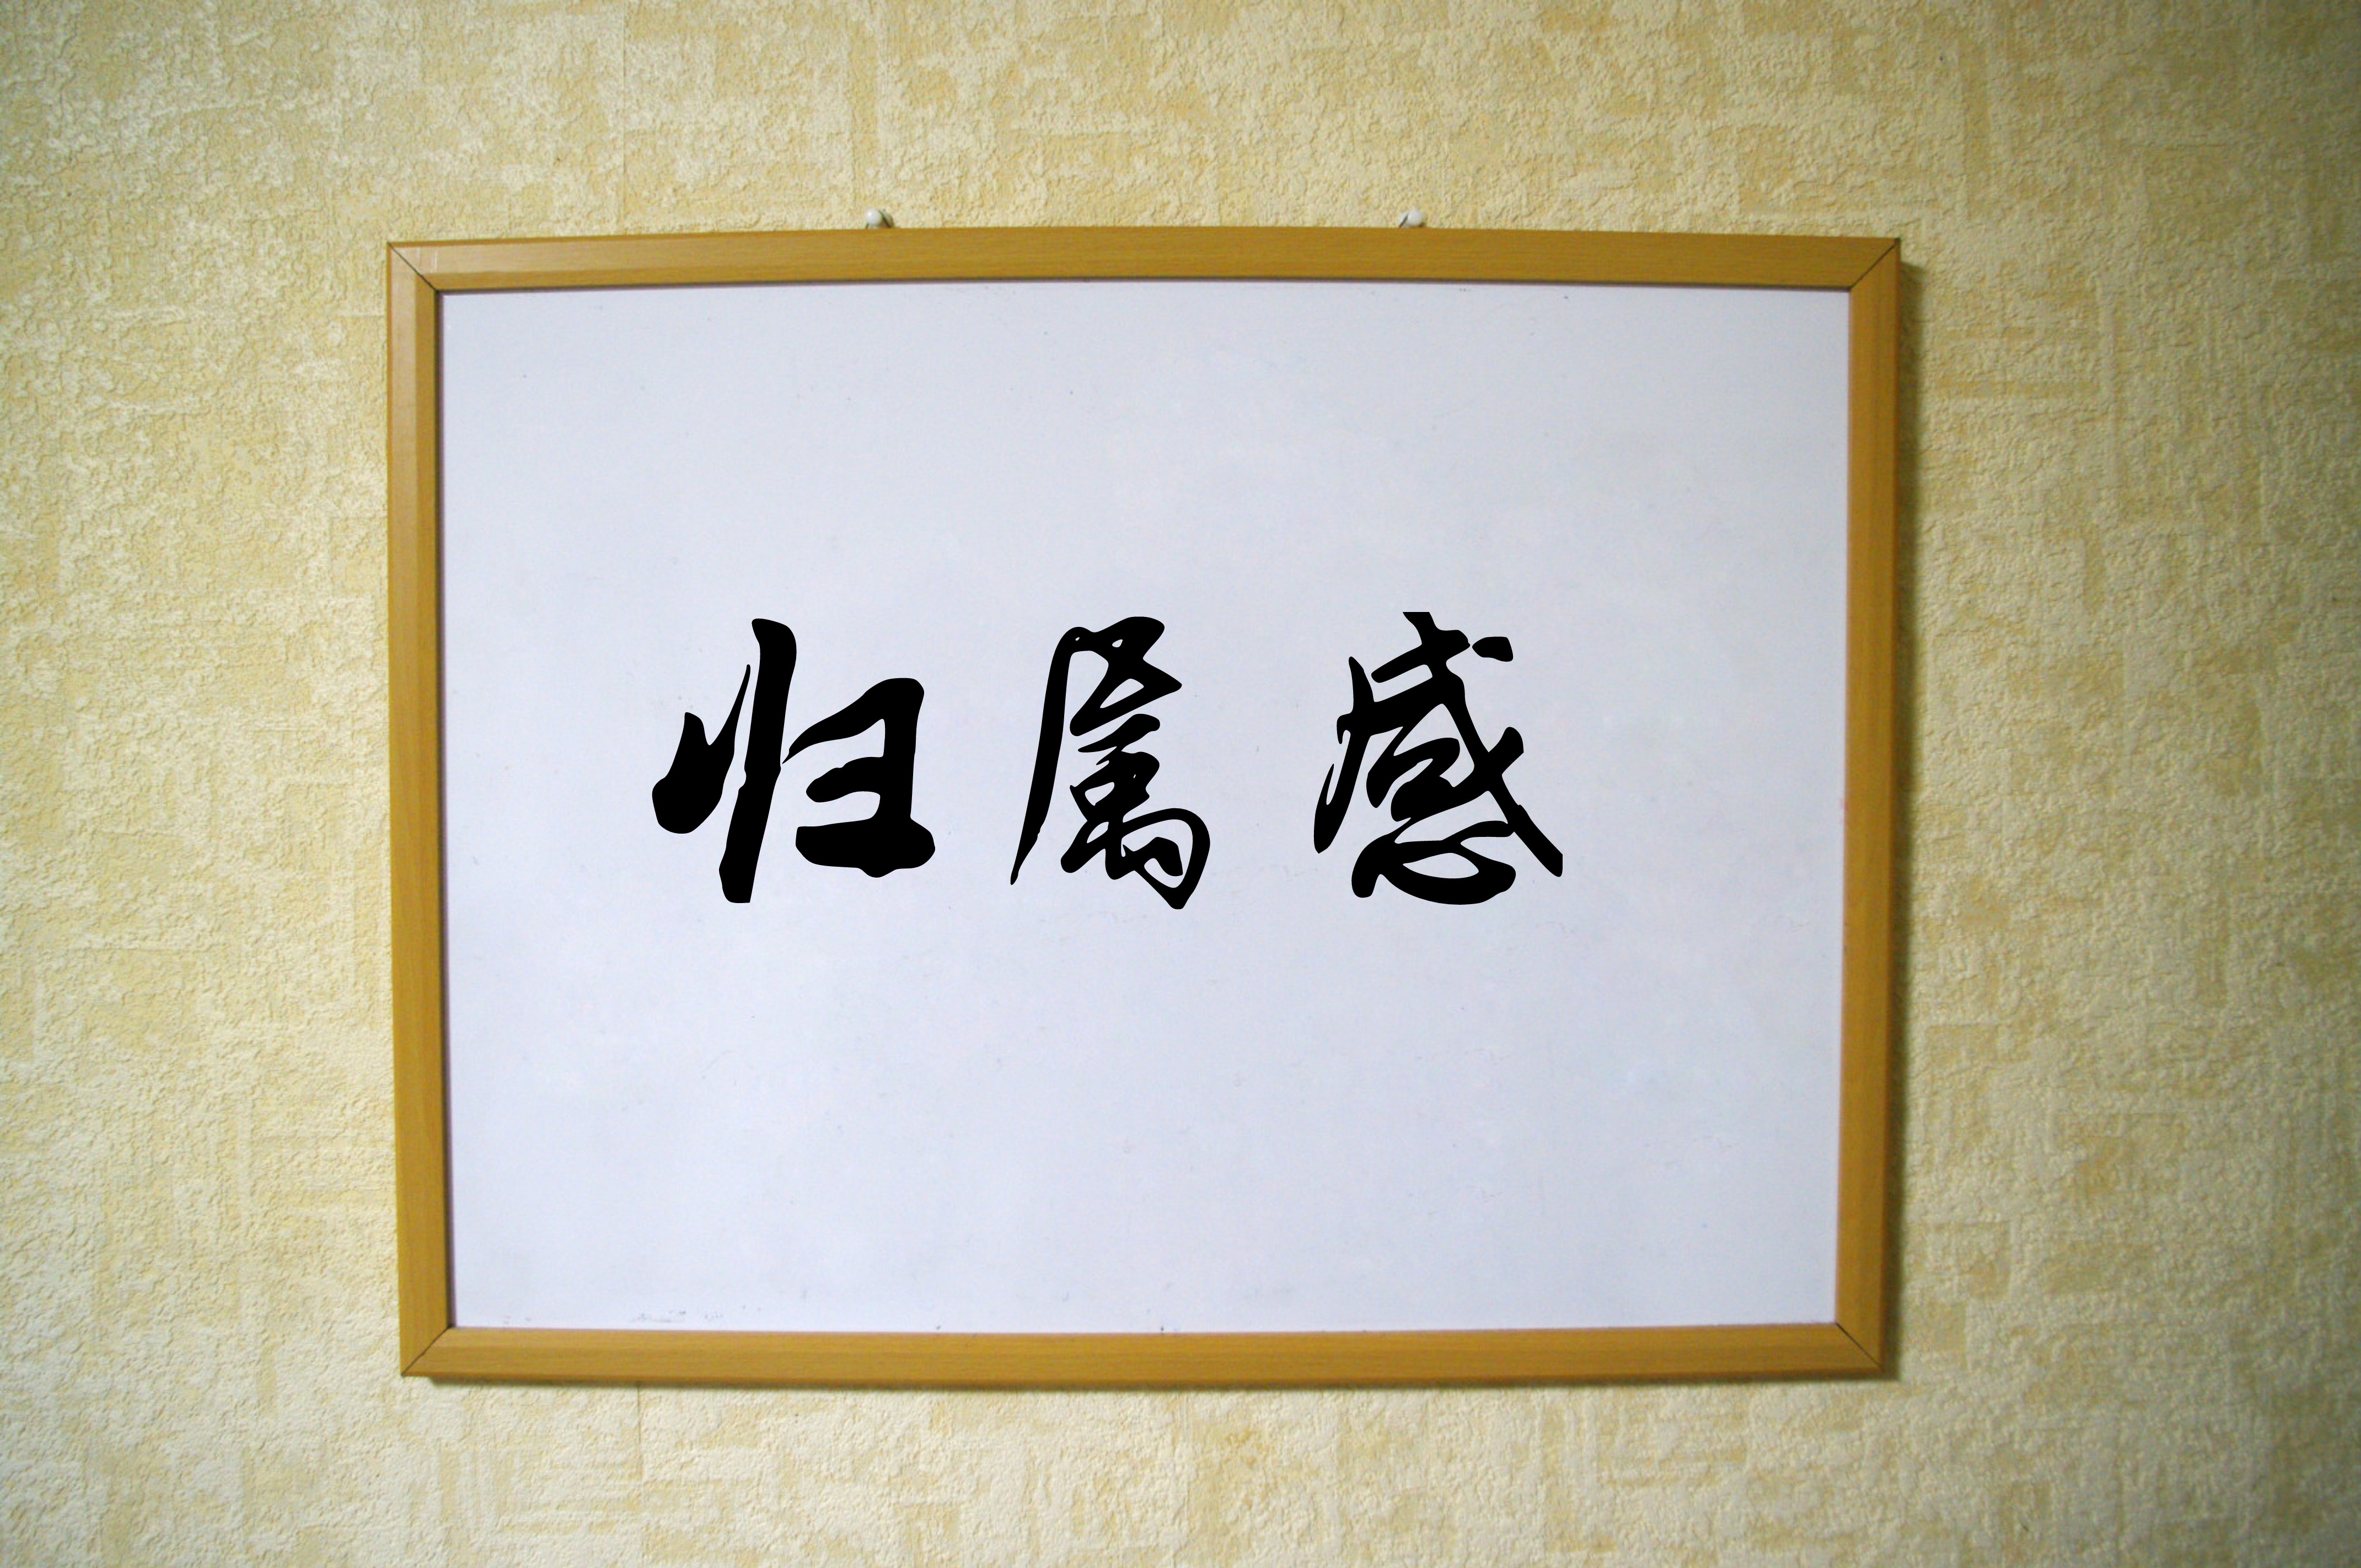 归属感